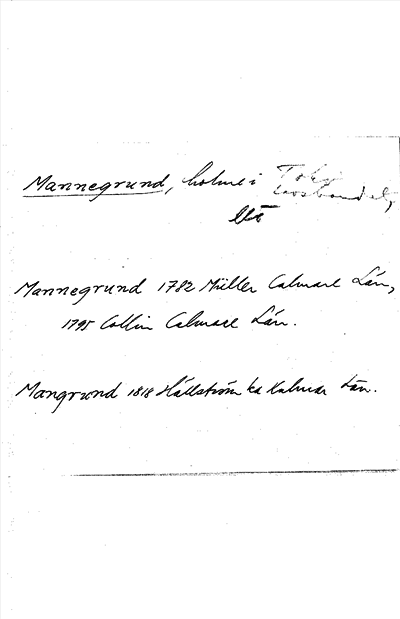 Mannegrund, holme i
Mannegrund 1782 Müller Calmare Län,
1795 Collin Calmare Län.
Mangrund 1818 Hällström ka Kalmar Län.